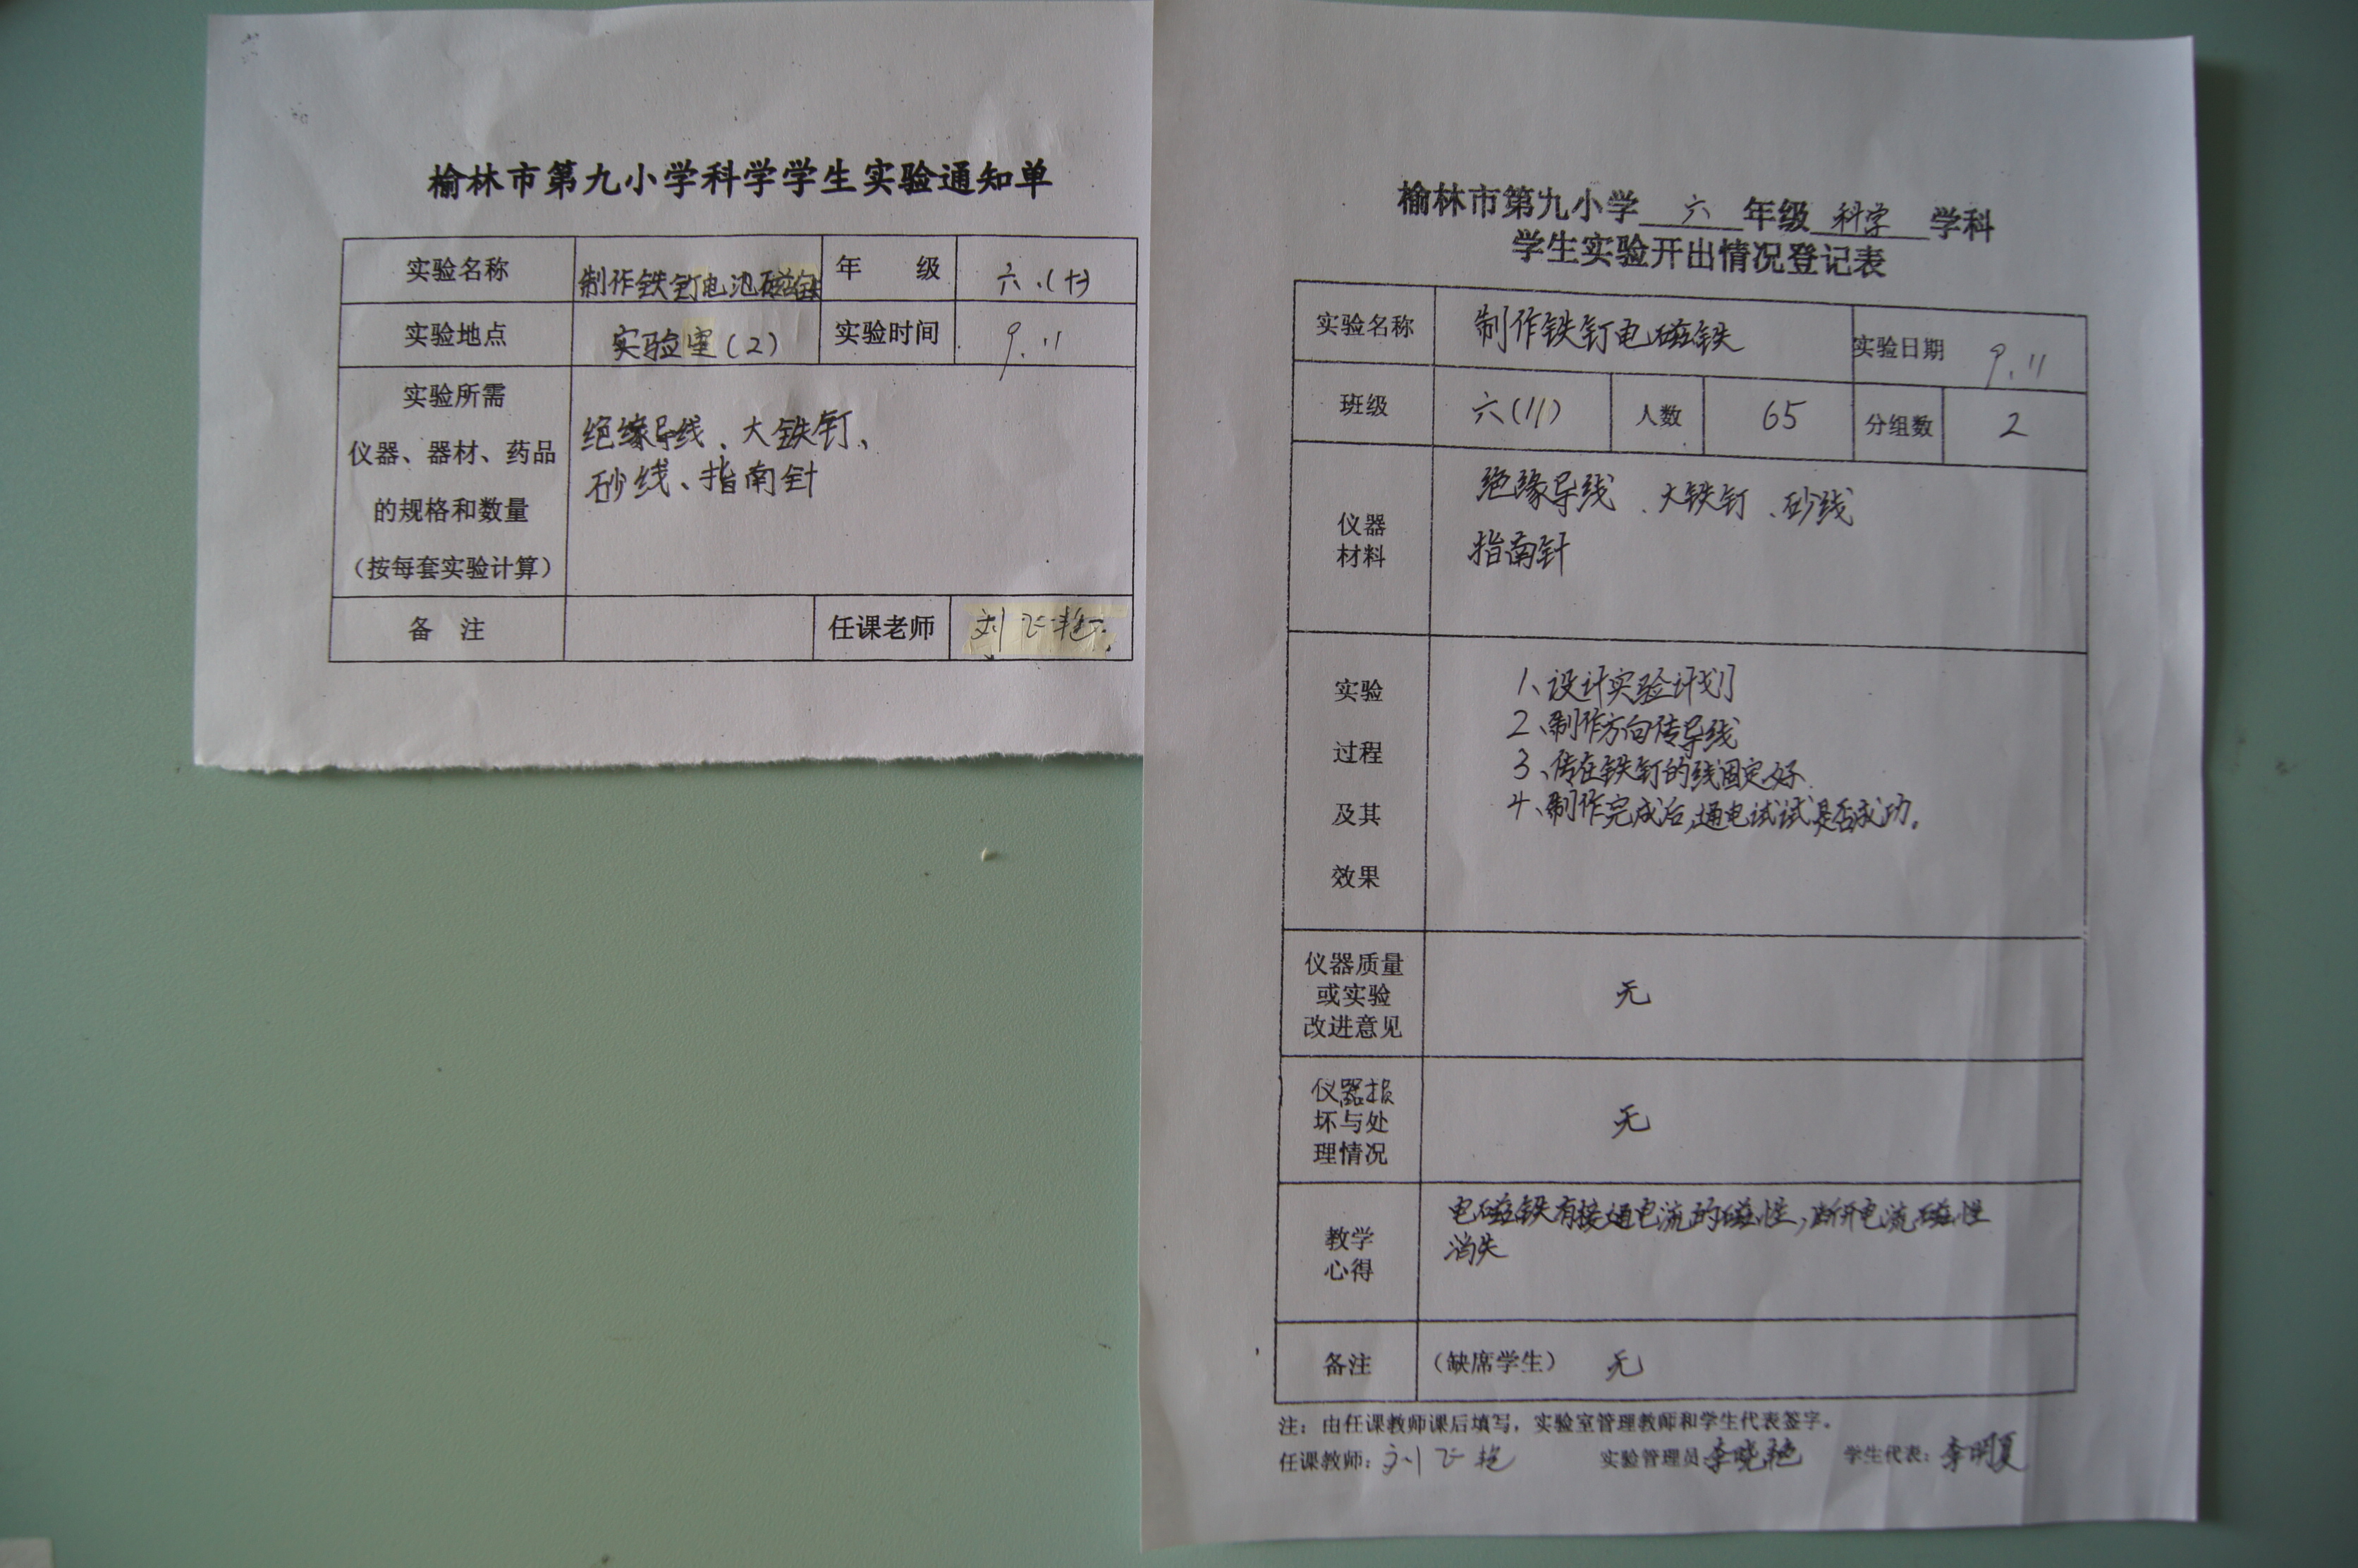 榆林市第九小学科学学生实验通知单
实验名称 制作铁钉电池磁铁 年 级 六.(十)
实验地点 实验室(2) 实验时间 9.11
实验所需
仪器、器材、药品
的规格和数量
(按每套实验计算)
绝缘导线、大铁钉、
砂线、指南针
备 注 任课老师 刘正艳
榆林市第九小学 六 年级 科学 学科
学生实验开出情况登记表
实验名称 制作铁钉电磁铁 实验日期 9.11
班级 六(11) 人数 65 分组数 2
仪器
材料
绝缘导线、大铁钉、砂线
指南针
实验
过程
及其
效果
1、设计实验计划
2、制作方向传导线
3、传在铁钉的线固定好.
4、制作完成后,通电试试是否成功。
仪器质量
或实验
改进意见
无
仪器损
坏与处
理情况
无
教学
心得
电磁铁有接通电流的磁性,断开电流磁性
消失
备注 (缺席学生) 无
注:由任课教师课后填写,实验室管理教师和学生代表签字。
任课教师:刘正艳 实验管理员:李晓艳 学生代表:李明夏